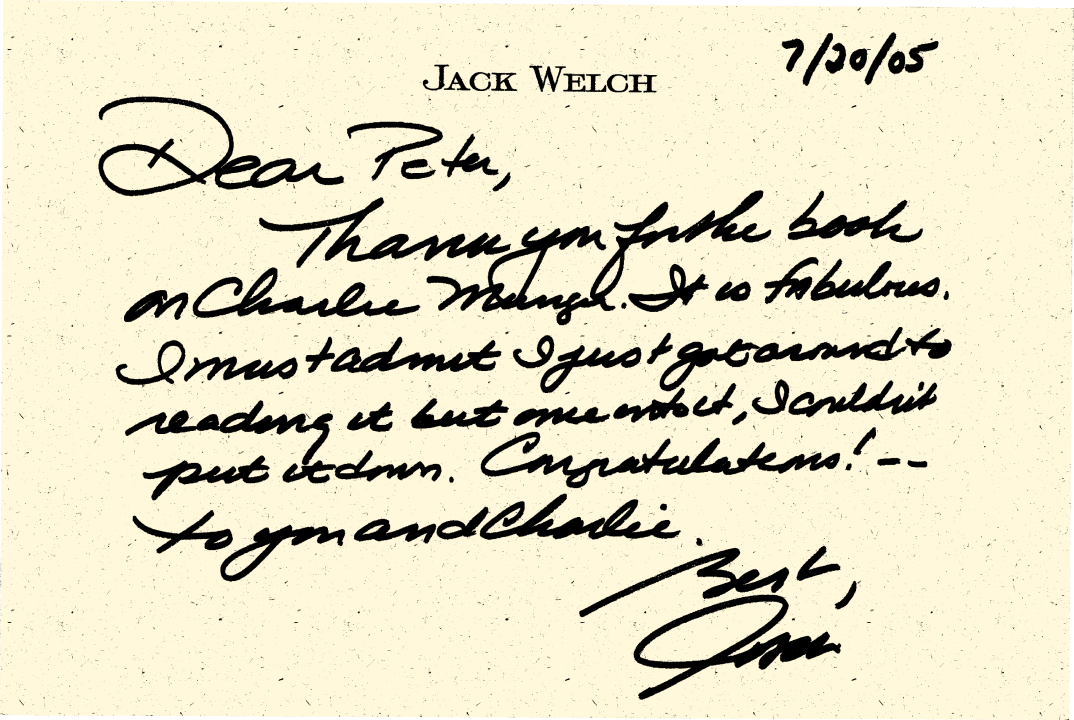 7/20/05
JACK WELCH
Dear Peter,
Thank you for the book
on Charlie Munger. It is fabulous.
I must admit I just got around to
reading it but once into it, I couldn't
put it down. Congratulations! --
to you and Charlie.
Best,
Jack